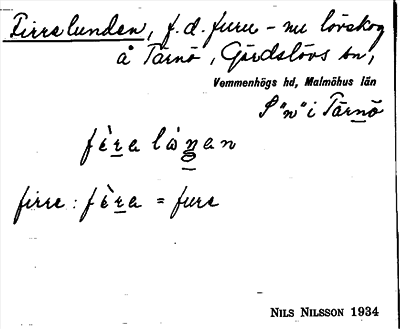 Firrelunden, f.d. furu - nu lövskog
å Tärnö, Gärdslövs sn,
Vemmenhögs hd, Malmöhus län
S "n" i Tärnö
fèra làŋan
firre : fèra = fure
NILS NILSSON 1934